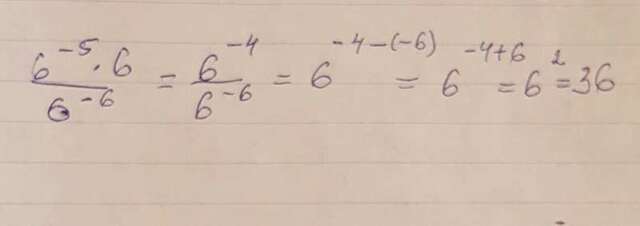 \frac{6^{-5} \cdot 6}{6^{-6}} = \frac{6^{-4}}{6^{-6}} = 6^{-4-(-6)} = 6^{-4+6} = 6^{2} = 36